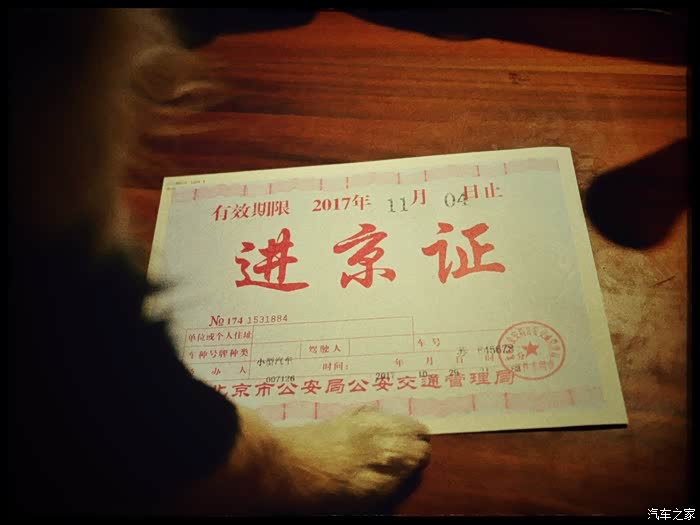 有效期限 2017年 11月 04日止
进京证
№ 174 1531884
单位或个人住址
车种号牌种类 小型汽车 驾驶人 车号
办人 007126 时间: 2017年 10月 29日 11时 分
北京市公安局公安交通管理局
汽车之家